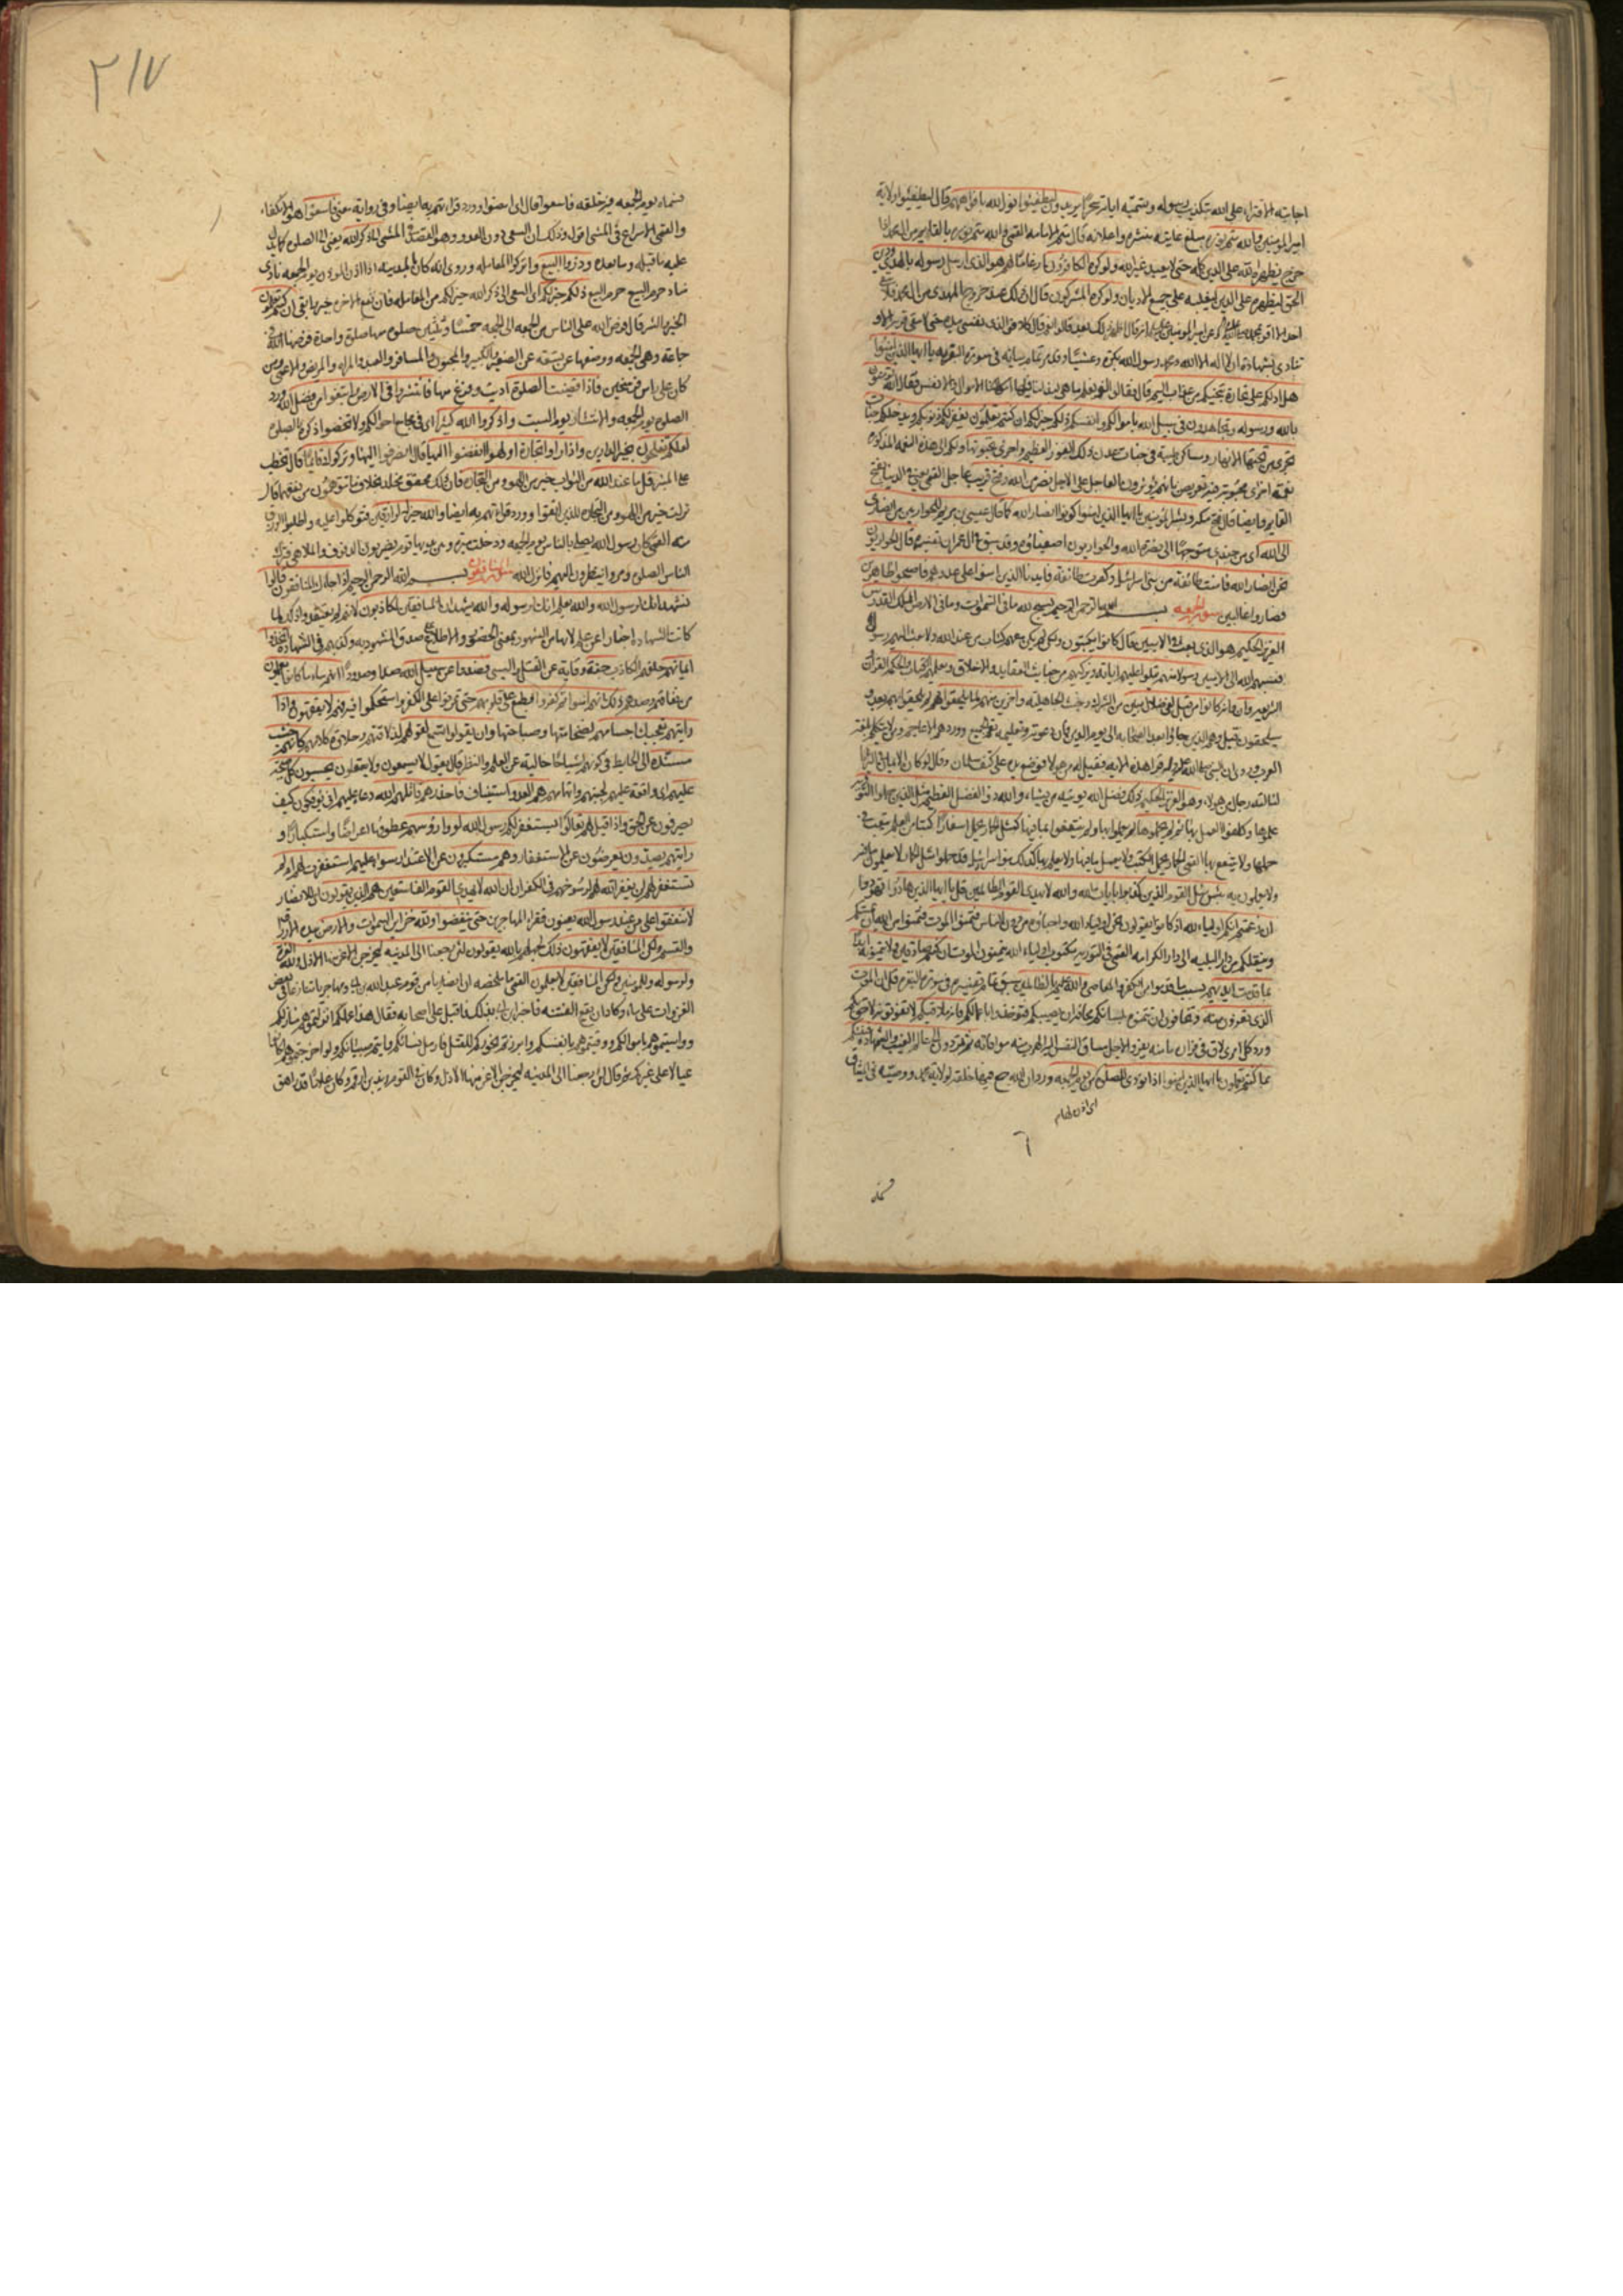 اجابته الافتراء على الله بتكذيب رسوله وتسميته اياته سحرا يريدون ليطفئوا نور الله بافواههم قال ليطفئوا ولاية
امير المؤمنين والله متم نوره مبلغ غايته بنشره واعلائه قال متم الامامة القمي والله متم نوره بالقايم من ال محمد اذا
خرج يظهره الله على الدين كله حتى لا يعبد غير الله ولو كره الكافرون ارغاما لهم هو الذي ارسل رسوله بالهدى ودين
الحق ليظهره على الدين ليغلبه على جميع الاديان ولو كره المشركون قال ان ذلك عند خروج المهدي من ال محمد فلا يبقى
احد الا اقر بمحمد وعن امير المؤمنين قال اظهر ذلك بعد قالوا نعم قال كلا فو الذي نفسي بيده حتى لا تبقى قرية الا و
تنادي بشهادة ان لا اله الا الله ومحمد رسول الله بكرة وعشيا وقد مر تمام بيانه في سورة البقره يا ايها الذين امنوا
هل ادلكم على تجارة تنجيكم من عذاب اليم قال فقالوا لو نعلم ما هي لبذلنا فيها الاموال والانفس فقال الله تؤمنون
بالله ورسوله وتجاهدون في سبيل الله باموالكم وانفسكم ذلكم خير لكم ان كنتم تعلمون يغفر لكم ذنوبكم ويدخلكم جنات
تجري من تحتها الانهار ومساكن طيبة في جنات عدن ذلك الفوز العظيم واخرى تحبونها ولكم الى هذه النعمة المذكوره
نعمة اخرى محبوبة فيه تعريض بانهم يؤثرون العاجل على الاجل نصر من الله وفتح قريب عاجل القمي يعني في الدنيا بفتح
القايم وايضا قال فتح مكه وبشر المؤمنين يا ايها الذين امنوا كونوا انصار الله كما قال عيسى بن مريم للحواريين من انصاري
الى الله اي من جندي متوجها الى نصرة الله والحواريون اصفياؤه وقد سبق في ال عمران تفسيره قال الحواريون
نحن انصار الله فامنت طائفة من بني اسرائيل وكفرت طائفة فايدنا الذين امنوا على عدوهم فاصبحوا ظاهرين
فصاروا غالبين سورة الجمعه بسم الله الرحمن الرحيم يسبح لله ما في السموات وما في الارض الملك القدوس
العزيز الحكيم هو الذي بعث في الاميين قال كانوا يكتبون ولكن لم يكن معهم كتاب من عند الله ولا بعث اليهم رسول
فنسبهم الله الى الاميين رسولا منهم يتلوا عليهم اياته ويزكيهم من خبائث العقايد والاخلاق ويعلمهم الكتاب والحكمة القران
الشريعة وان كانوا من قبل لفي ضلال مبين من الشرك وخبث الجاهلية واخرين منهم لما يلحقوا بهم لم يلحقوا بهم بعد و
سيلحقون وهم الذين جاؤا بعد الصحابه الى يوم الدين فان دعوته وتعليمه يعم الجميع وورد هم الاعاجم ومن لا يتكلم بلغة
العرب وروى ان النبي صلى الله عليه واله قرأ هذه الاية فقيل له من هؤلاء فوضع يده على كتف سلمان وقال لو كان الايمان في الثريا
لنالته رجال من هؤلاء وهو العزيز الحكيم ذلك فضل الله يؤتيه من يشاء والله ذو الفضل العظيم مثل الذين حملوا التوريه
علموها وكلفوا العمل بها ثم لم يحملوها لم يعملوا بها ولم ينتفعوا بما فيها كمثل الحمار يحمل اسفارا كتبا من العلم يتعب في
حملها ولا ينتفع بها القمي الحمار يحمل الكتب ولا يعلم ما فيها ولا يعمل بها كذلك بنو اسرائيل قد حملوا مثل الحمار لا يعلمون ما فيه
ولا يعملون به بئس مثل القوم الذين كذبوا بايات الله والله لا يهدي القوم الظالمين قل يا ايها الذين هادوا تهودوا
ان زعمتم انكم اولياء لله اذ كانوا يقولون نحن اولياء الله واحباؤه من دون الناس فتمنوا الموت فتمنوا من الله ان يميتكم
وينقلكم من دار البلية الى دار الكرامة القمي في التورية مكتوب اولياء الله يتمنون الموت ان كنتم صادقين ولا يتمنونه ابدا
بما قدمت ايديهم بسبب ما قدموا من الكفر والمعاصي والله عليم بالظالمين سبق تمام تفسيره في سورة البقره قل ان الموت
الذي تفرون منه وتخافون ان تتمنوه بلسانكم مخافة ان يصيبكم فتؤخذوا باعمالكم فانه ملاقيكم لا تفوتونه لاحق بكم
ورد كل امرئ لاق في فراره ما منه يفر والاجل مساق النفس اليه والهرب منه موافاته ثم تردون الى عالم الغيب والشهادة فينبئكم
بما كنتم تعملون يا ايها الذين امنوا اذا نودي للصلوة من يوم الجمعه ورد ان الله جمع فيها خلقه لولاية محمد ووصيه في الميثاق
اي اذن لها
٣١٧
فسماه يوم الجمعه لجمعه فيه خلقه فاسعوا قال اي امضوا وورد قراءتهم به ايضا وفي رواية معنى فاسعوا هو الانكفاء
والقمي الاسراع في المشي اقول وذلك ان السعي دون العدو وهو القصد في المشي الى ذكر الله يعني الى الصلوة كما يدل
عليه ما قبله وما بعده وذروا البيع واتركوا المعامله وروي انه كان بالمدينه اذا اذن المؤذن يوم الجمعه نادى
مناد حرم البيع حرم البيع ذلكم خير لكم اي السعي الى ذكر الله خير لكم من المعامله فان نفع الاخرة خير وابقى ان كنتم تعلمون
الخير والشر قال فرض الله على الناس من الجمعه الى الجمعه خمسا وثلثين صلوة منها صلوة واحدة فرضها الله في
جماعة وهي الجمعه ووضعها عن تسعة عن الصغير والكبير والمجنون والمسافر والعبد والمراة والمريض والاعمى ومن
كان على راس فرسخين فاذا قضيت الصلوة اديت وفرغ منها فانتشروا في الارض وابتغوا من فضل الله ورد
الصلوة يوم الجمعه والانتشار يوم السبت واذكروا الله كثيرا اي في مجامع احوالكم ولا تخصوا ذكره بالصلوة
لعلكم تفلحون بخير الدارين واذا راوا تجارة او لهوا انفضوا اليها قال انصرفوا اليها وتركوك قائما قال تخطب
على المنبر قل ما عند الله من الثواب خير من اللهو ومن التجارة فان ذلك محقق مخلد بخلاف ما تتوهمون من نفعها قال
نزلت خير من اللهو ومن التجاره للذين اتقوا وورد قراءتهم به ايضا والله خير الرازقين فتوكلوا عليه واطلبوا الرزق
منه القمي كان رسول الله يصلي بالناس يوم الجمعه ودخلت ميرة وبين يديها قوم يضربون الدفوف والملاهي فترك
الناس الصلوة ومروا ينظرون اليهم فانزل الله سورة المنافقون بسم الله الرحمن الرحيم اذا جاءك المنافقون قالوا
نشهد انك لرسول الله والله يعلم انك لرسوله والله يشهد ان المنافقين لكاذبون لانهم لم يعتقدوا ذلك لما
كانت الشهادة اخبارا عن علم لانها من الشهود بمعنى الحضور والاطلاع صدق المشهود به وكذبهم في الشهادة اتخذوا
ايمانهم حلفهم الكاذب جنة وقاية عن القتل والسبي فصدوا عن سبيل الله صدا وصدودا انهم ساء ما كانوا يعملون
من نفاقهم وصدهم ذلك بانهم امنوا ثم كفروا فطبع على قلوبهم حتى تمرنوا على الكفر واستحكموا فيه فهم لا يفقهون واذا
رايتهم تعجبك اجسامهم لضخامتها وصباحتها وان يقولوا تسمع لقولهم لذلاقتهم وحلاوة كلامهم كانهم خشب
مسندة الى الحايط في كونهم اشباحا خالية عن العلم والنظر قال يقول لا يسمعون ولا يعقلون يحسبون كل صيحة
عليهم اي واقعة عليهم لجبنهم واتهامهم هم العدو استيناف فاحذرهم قاتلهم الله دعاء عليهم انى يؤفكون كيف
يصرفون عن الحق واذا قيل لهم تعالوا يستغفر لكم رسول الله لووا رؤسهم عطفوها اعراضا واستكبارا و
رايتهم يصدون يعرضون عن الاستغفار وهم مستكبرون عن الاعتذار سواء عليهم استغفرت لهم ام لم
تستغفر لهم لن يغفر الله لهم لرسوخهم في الكفر ان الله لا يهدي القوم الفاسقين هم الذين يقولون اي للانصار
لا تنفقوا على من عند رسول الله يعنون فقراء المهاجرين حتى ينفضوا ولله خزائن السموات والارض بيده الارزاق
والقسم ولكن المنافقين لا يفقهون ذلك لجهلهم بالله يقولون لئن رجعنا الى المدينه ليخرجن الاعز منها الاذل ولله العزة
ولرسوله وللمؤمنين ولكن المنافقين لا يعلمون القمي ما ملخصه ان انصاريا من قوم عبد الله بن ابي ومهاجريا تنازعا في بعض
الغزوات على ماء وكاد ان يقع الفتنة فاخبر ابن ابي بذلك فاقبل على اصحابه فقال هذا عملكم انزلتموهم منازلكم
وواسيتموهم باموالكم ووقيتموهم بانفسكم وابرزتم نحوركم للقتل فارمل نساءكم وايتم صبيانكم ولو اخرجتموهم لكانوا
عيالا على غيركم ثم قال لئن رجعنا الى المدينه ليخرجن الاعز منها الاذل وكان في القوم زيد بن ارقم وكان غلاما قد راهق